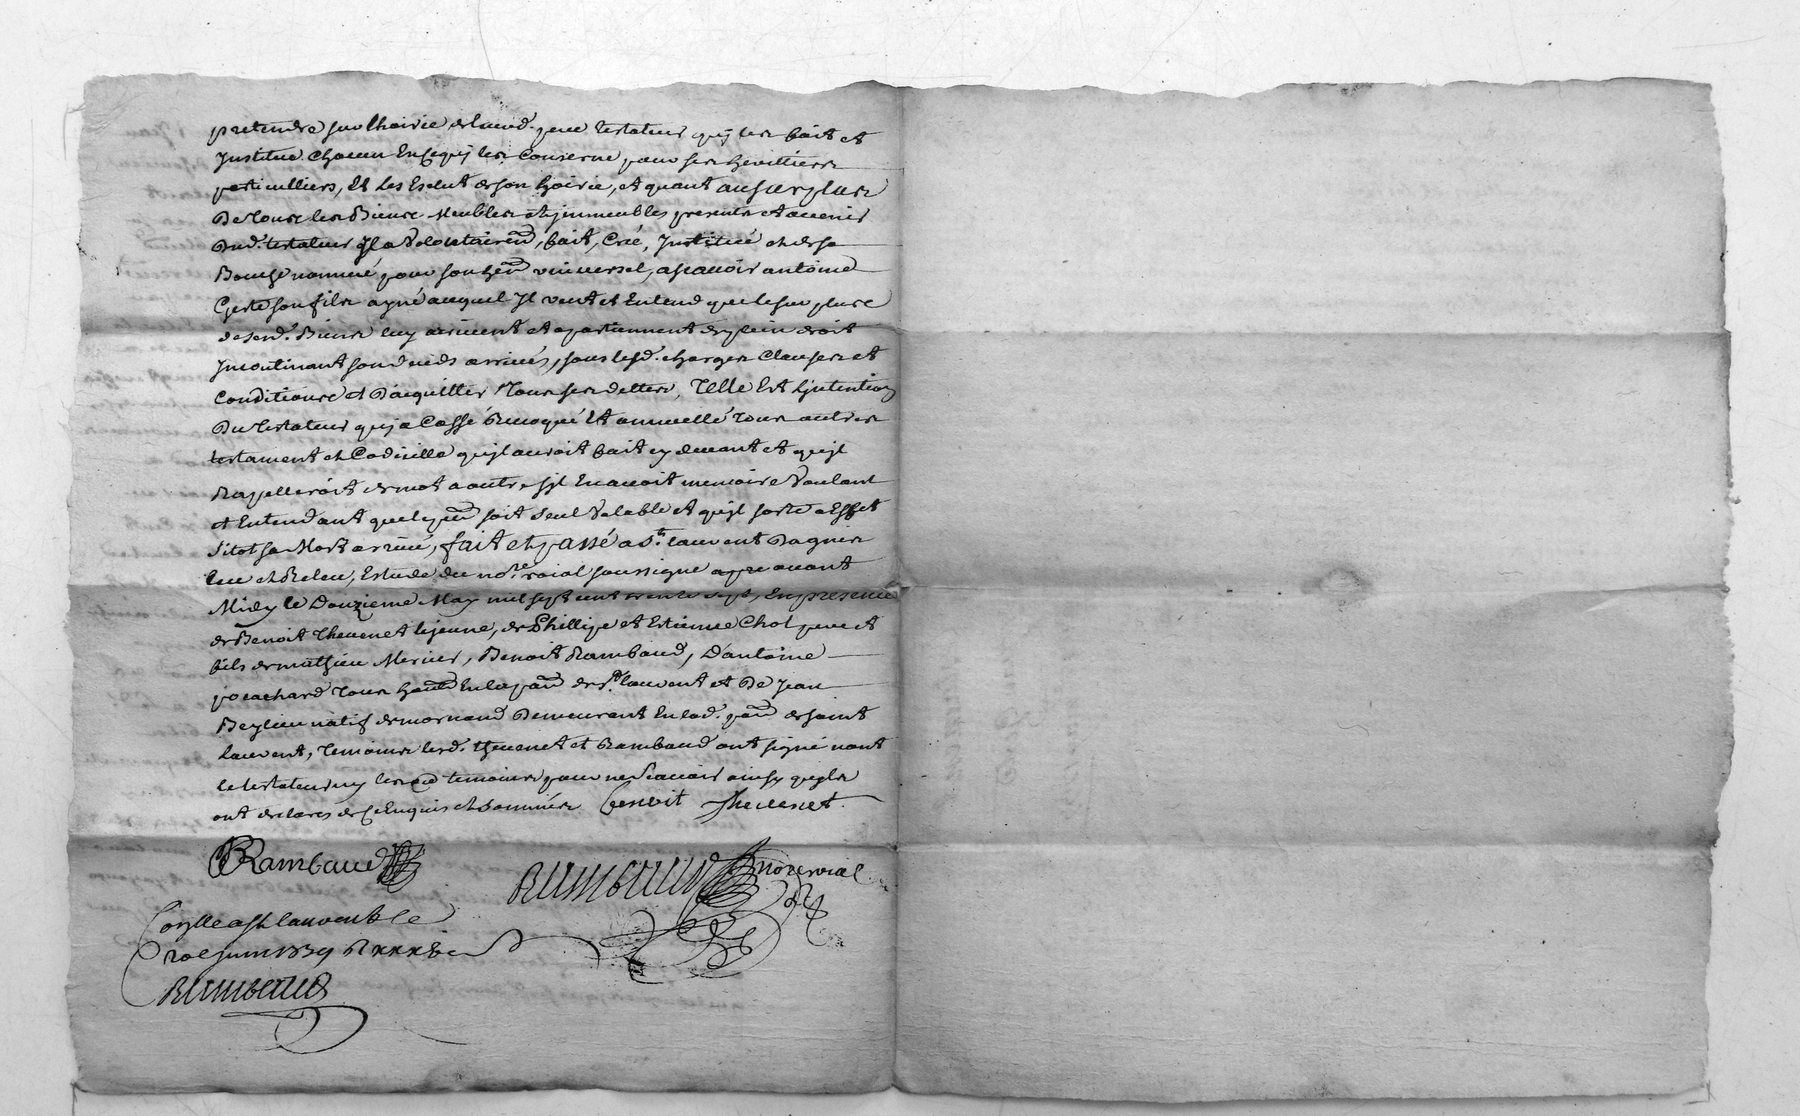 pretendre sur lhoirie dud. testateur quj les fait et
Institue chacun En ce quj les Conserne pour ses heritiers
particulliers, Et les Exclut de son hoirie, et quant au surplus
De tous les Biens Meubles et jmmeubles presents et avenir
Dud. testateur Jl a Volontairemt, fait, Créé, Institué et de sa
Bouche nommé pour son hers universel, a scavoir antoine
son fils ayné auquel Jl veut et Entend que le surplus
de sesd. Biens luy arrivent et apartiennent de plein droit
Incontinant son deceds arrivés, sous lesd. charges Clauses et
Conditions et D'aquitter tous ses dettes, Telle Est L'intention
Du testateur quj a Cassé Revoqué Et annuellé tous autres
testament et Codicille qujl auroit fait cy devant et qujl
Rapelleroit de mot a autre sjl En avoit memoire Voulant
et Entendant que le pnt soit seul Valable et qujl sorte a Effet
sitot sa Mort arrivé, fait et passé a St. laurent Dagnis
leu et Releu, Estude du nore. roial soussigne apre avant
Midy le Douzieme May mil sept cent trente sept, En presence
de Benoit Thevenet le jeune, de Phillipe et Estienne Chol pere et
fils de mathieu Mercier, Benoit Rambaud, D'antoine
tous habts En la parr de St. laurent et De Jean
natif de mornand Demeurant En lad. parr de saint
laurent, temoins lesd. thevenet et Rambaud ont signé nont
le testateur ny les temoins pour ne scavoir ainsy qujls
ont declares de ce Enquis et sommés. Benoit Thevenet
BRambaud
Rambaud nore roial
Controlle a St laurent le
juin 1739 R
Rambaud